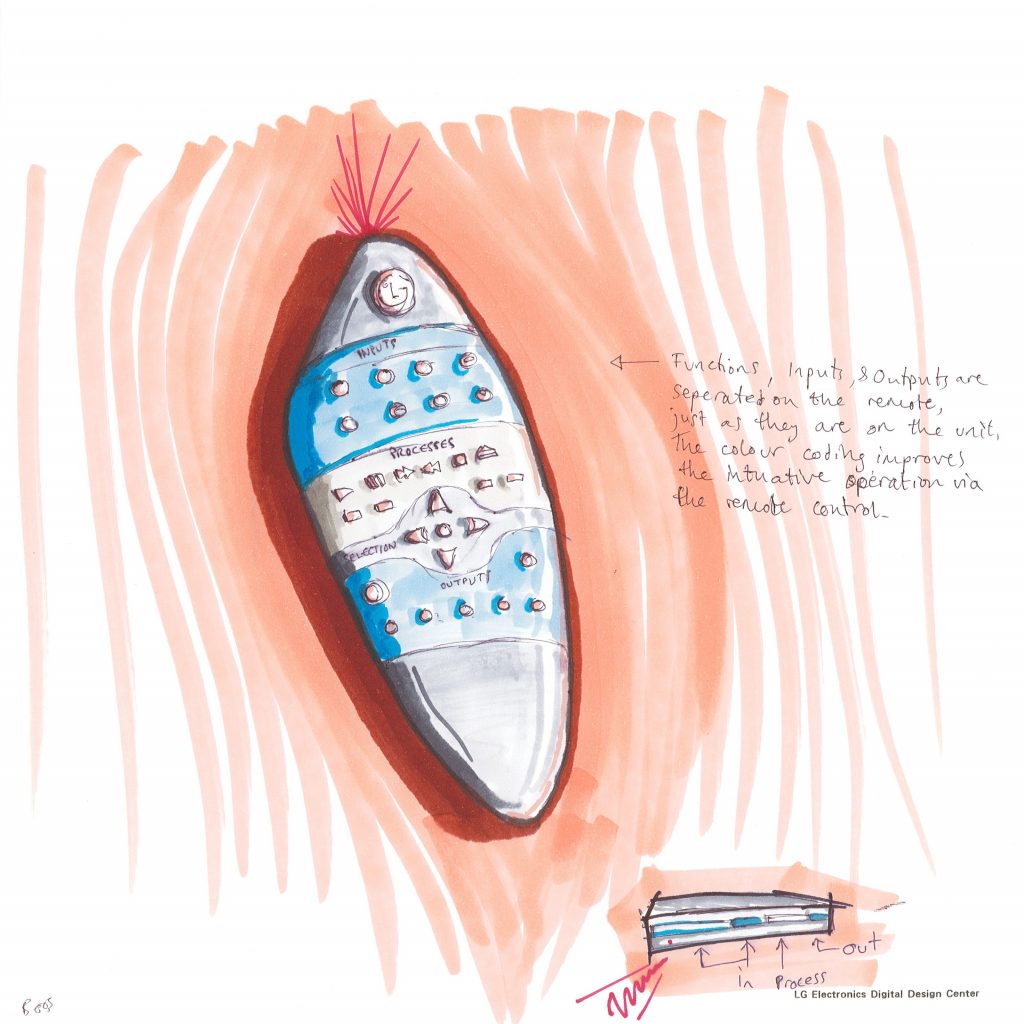 INPUTS
PROCESSES
SELECTION
OUTPUTS
Functions, Inputs, & Outputs are
seperated on the remote,
just as they are on the unit,
the colour coding improves
the intuative operation via
the remote control.
out
in Process
LG Electronics Digital Design Center